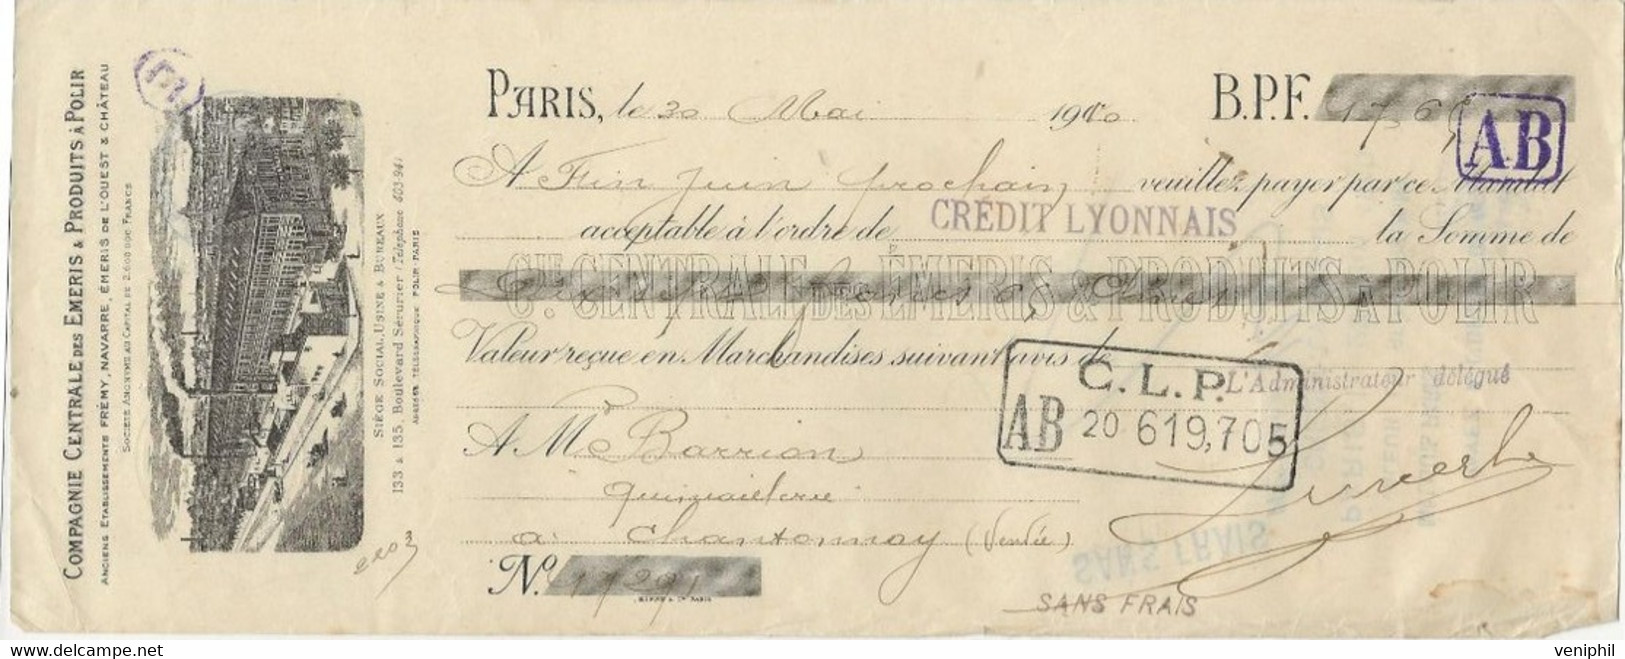 COMPAGNIE CENTRALE DES EMERIS & PRODUITS À POLIR
ANCIENS ETABLISSEMENTS FRÉMY, NAVARRE, ÉMERIS DE L'OUEST & CHÂTEAU
SOCIÉTÉ ANONYME AU CAPITAL DE 2.600.000 FRANCS
SIÈGE SOCIAL, USINE & BUREAUX
133 & 135 Boulevard Sérurier (Téléphone 403-94)
ADRESSE TÉLÉGRAPHIQUE POLIR PARIS
PARIS, le 30 Mai 1910 B.P.F. 176
AB
A Fin juin prochain veuillez payer par ce Mandat
acceptable à l'ordre de CRÉDIT LYONNAIS la Somme de
CIE CENTRALE DES ÉMERIS & PRODUITS À POLIR
Valeur reçue en Marchandises suivant avis de
L'Administrateur délégué
C.L.P.
AB 20 619,705
A Mr Barrion
quincaillerie
à Chantonnay (Vendée)
No 17291
SANS FRAIS
SANS FRAIS
veniphil